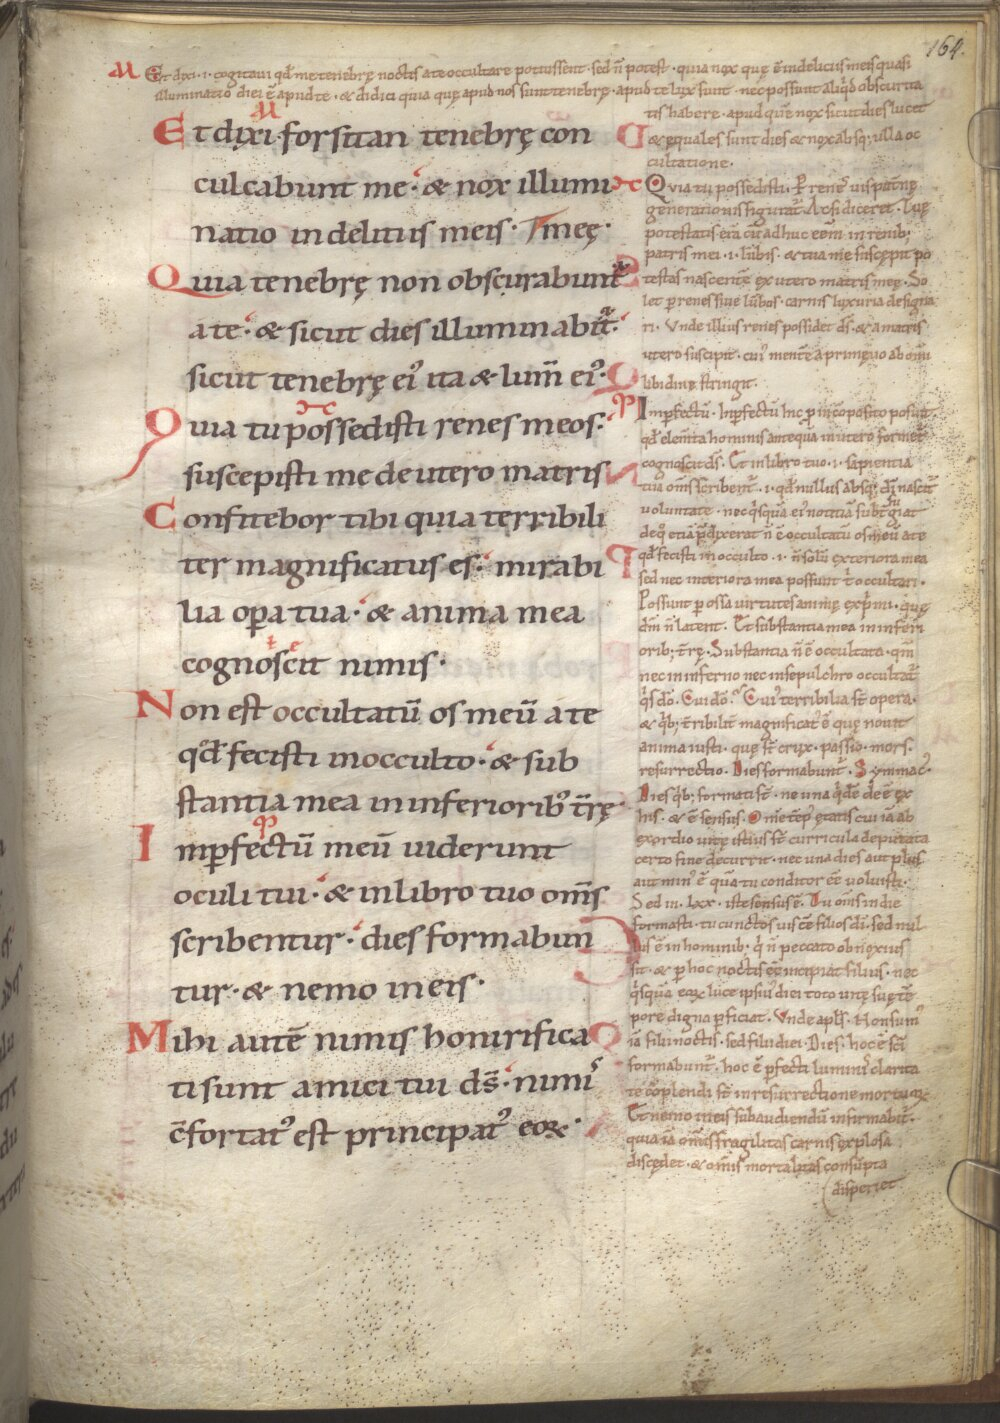 164.
Et dixi .i. cogitaui qđ me tenebrę noctis a te occultare potuissent. sed n̄ potest. quia nox quę ē in deliciis meis quasi
illuminatio diei ē apud te. & didici quia quę apud nos sunt tenebrę. apud te lux sunt. nec possunt aliq̇d obscurita
tis habere. apud quē nox sicut dies lucet
& ęquales sunt dies & nox absq; ulla oc
cultatione.
Et dixi forsitan tenebrę con
culcabunt me. & nox illumi
natio in delitiis meis. meę.
Quia tenebrę non obscurabunt̄
a te. & sicut dies illuminabit̄.
sicut tenebrę ei᾿ ita & lum̄ ei᾿.
Quia tu possedisti renes meos.
suscepisti me de utero matris
Confitebor tibi quia terribili
ter magnificatus es. mirabi
lia oꝑa tua. & anima mea
cognoscit nimis.
Non est occultatū os meū a te
qđ fecisti in occulto. & sub
stantia mea in inferiorib᾿ t̄rę.
Imꝑfectū meū uiderunt
oculi tui. & in libro tuo om̄s
scribentur. dies formabun
tur. & nemo in eis.
Mihi autē nimis honirifica
ti sunt amici tui ds̄. nimi᾿
c̄fortat᾿ est principat᾿ eoꝝ.
Quia tu possedisti.
generationis figurat̄. Ac si diceret. Tuę
potestatis erā cū adhuc eēm in renib;
patris mei .i. lūbis. & tua me suscępit po
testas nascentē ex utero matris meę. So
let ꝑ renes siue lūbos. carnis luxuria designa
ri. Vnde illius renes possidet ds̄. & a matris
utero suscipit. cui᾿ mentē a primęuo ab omi
libidine stringit.
Imꝑfectū. Inꝑfectū hic ꝑ incōposito posuit.
qđ elem̄ta hominis antequā in utero formet̄
cognoscit ds̄. Et in libro tuo .i. sapientia
tua om̄s scribent̄ .i. qđ nullus absq; di nascit̄
uoluntate. nec q̇squā ei᾿ notitia subt̄fugiat
qđ fecisti in occulto .i. n̄ solū exteriora mea
sed nec interiora mea possunt t̄ occultari.
Possunt ꝑ ossa uirtutes animę exp̄mi. quę
dm̄ n̄ latent. Et substantia mea in inferi
orib; t̄rę. Substantia n̄ ē occultata. qm̄
nec in inferno nec in sepulchro occultat̄
Cui᾿ terribilia st̄ opera.
& q̇b; t̄ribilit̄ magnificat᾿ ē quę nouit
anima iusti. quę st̄ crux. passio. mors.
resurrectio. Dies formabunt̄. Symmac᾿.
Dies q̇b; formati st̄. ne una q̇dē de ē ex
his. & ē sensus. Om̄e tēp᾿ ętatis cui iā ab
exordio uitę istius st̄ curricula deputata
certo fine decurrit. nec una dies aut plus
aut min᾿ ē quā tu conditor eē uoluisti.
Sed in .lxx. iste sensus ē. Tu om̄s in die
formasti. tu cunctos uis eē filios di. sed nul
lus ē in hominib; q̇ n̄ peccato obnoxius
sit. & ꝑ hoc noctis eē incipiat filius. nec
q̇squā eoꝝ luce ipsiu᾿ diei toto uitę suę tē
pore digna ꝑficiat. Vnde apl̄s. Non sum᾿
iā filii noctis. sed filii diei. Dies. hoc ē sc̄i
formabunt̄. hoc ē ꝑfecti luminis clarita
te cōplendi st̄ in resurrectione mortuoꝝ.
Et nemo in eis subaudiendū infirmabit̄.
quia iā om̄is fragilitas carnis explosa
discędet. & om̄is mortalitas consūpta
disperiet